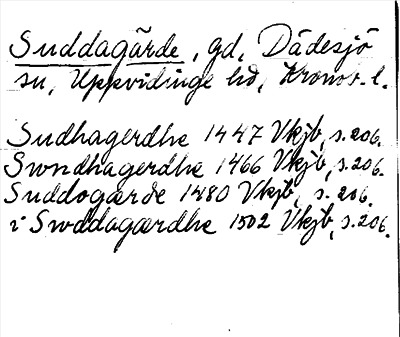 Suddagärde, gd, Dädesjö
sn, Uppvidinge hd, Kronob. l.
Sudhagerdhe 1447 Vkjb, s. 206.
Swndhagerdhe 1466 Vkjb, s. 206.
Suddogärde 1480 Vkjb, s. 206.
i Swddagærdhe 1502 Vkjb, s. 206.